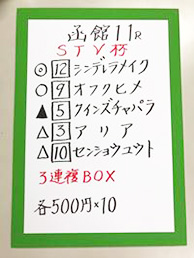 函館11R
STV杯
◎ 12 シンデレラメイク
○ 9 オフクヒメ
▲ 5 クインズチャパラ
△ 3 アリア
△ 10 センショウユウト
3連複BOX
各500円×10